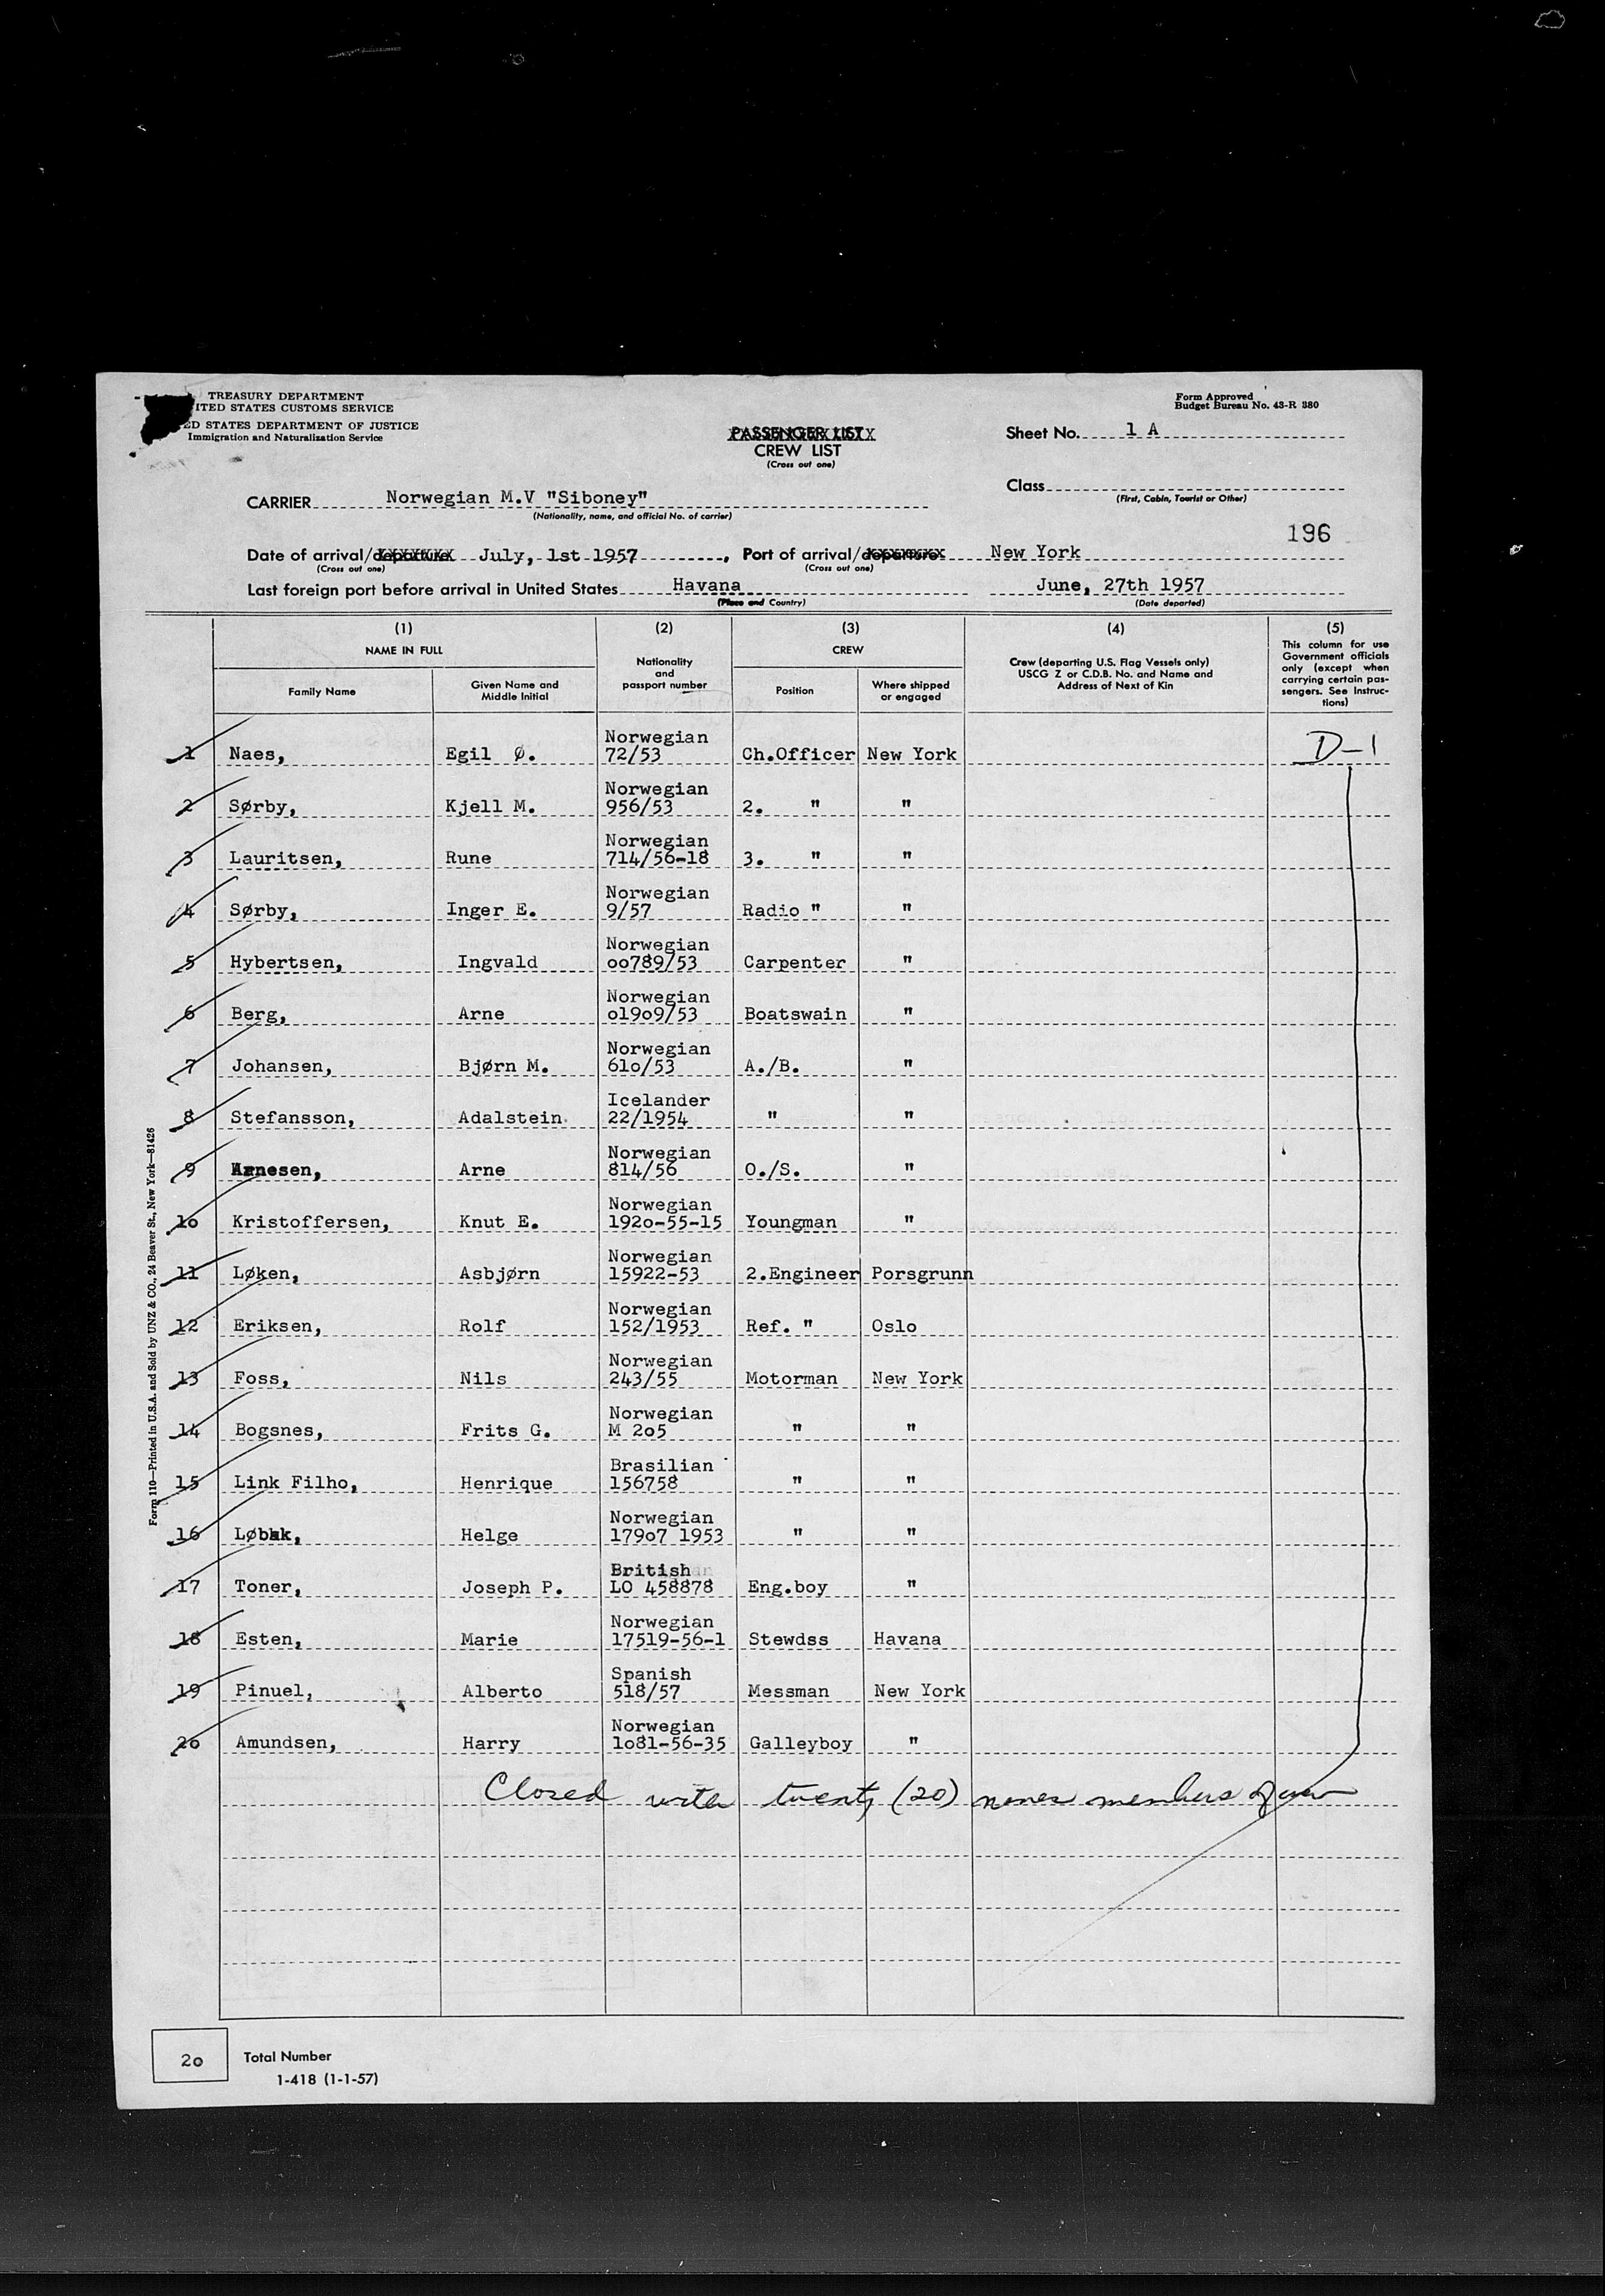 TREASURY DEPARTMENT
ITED STATES CUSTOMS SERVICE
ED STATES DEPARTMENT OF JUSTICE
Immigration and Naturalization Service
Form Approved
Budget Bureau No. 43-R 380
PASSENGER LIST
CREW LIST
(Cross out one)
Sheet No. 1 A
Class
(First, Cabin, Tourist or Other)
CARRIER Norwegian M.V "Siboney"
(Nationality, name, and official No. of carrier)
196
Date of arrival/departure July, 1st 1957, Port of arrival/departure New York
(Cross out one) (Cross out one)
Last foreign port before arrival in United States Havana June, 27th 1957
(Place and Country) (Date departed)
(1) (2) (3) (4) (5)
NAME IN FULL
Family Name
Given Name and
Middle Initial
Nationality
and
passport number
CREW
Position
Where shipped
or engaged
Crew (departing U.S. Flag Vessels only)
USCG Z or C.D.B. No. and Name and
Address of Next of Kin
This column for use
Government officials
only (except when
carrying certain pas-
sengers. See Instruc-
tions)
Norwegian
1 Naes, Egil Ø. 72/53 Ch.Officer New York D-1
Norwegian
2 Sørby, Kjell M. 956/53 2. " "
Norwegian
3 Lauritsen, Rune 714/56-18 3. " "
Norwegian
4 Sørby, Inger E. 9/57 Radio " "
Norwegian
5 Hybertsen, Ingvald oo789/53 Carpenter "
Norwegian
6 Berg, Arne o19o9/53 Boatswain "
Norwegian
7 Johansen, Bjørn M. 61o/53 A./B. "
Icelander
8 Stefansson, Adalstein 22/1954 " "
Norwegian
9 Arnesen, Arne 814/56 O./S. "
Norwegian
1o Kristoffersen, Knut E. 192o-55-15 Youngman "
Norwegian
11 Løken, Asbjørn 15922-53 2.Engineer Porsgrunn
Norwegian
12 Eriksen, Rolf 152/1953 Ref. " Oslo
Norwegian
13 Foss, Nils 243/55 Motorman New York
Norwegian
14 Bogsnes, Frits G. M 2o5 " "
Brasilian
15 Link Filho, Henrique 156758 " "
Norwegian
16 Helge 179o7 1953 " "
British
17 Toner, Joseph P. LO 458878 Eng.boy "
Norwegian
18 Esten, Marie 17519-56-1 Stewdss Havana
Spanish
19 Pinuel, Alberto 518/57 Messman New York
Norwegian
2o Amundsen, Harry 1o81-56-35 Galleyboy "
Closed with twenty (20) names members of crew
2o Total Number
1-418 (1-1-57)
Form 110—Printed in U.S.A. and Sold by UNZ & CO., 24 Beaver St., New York—81426